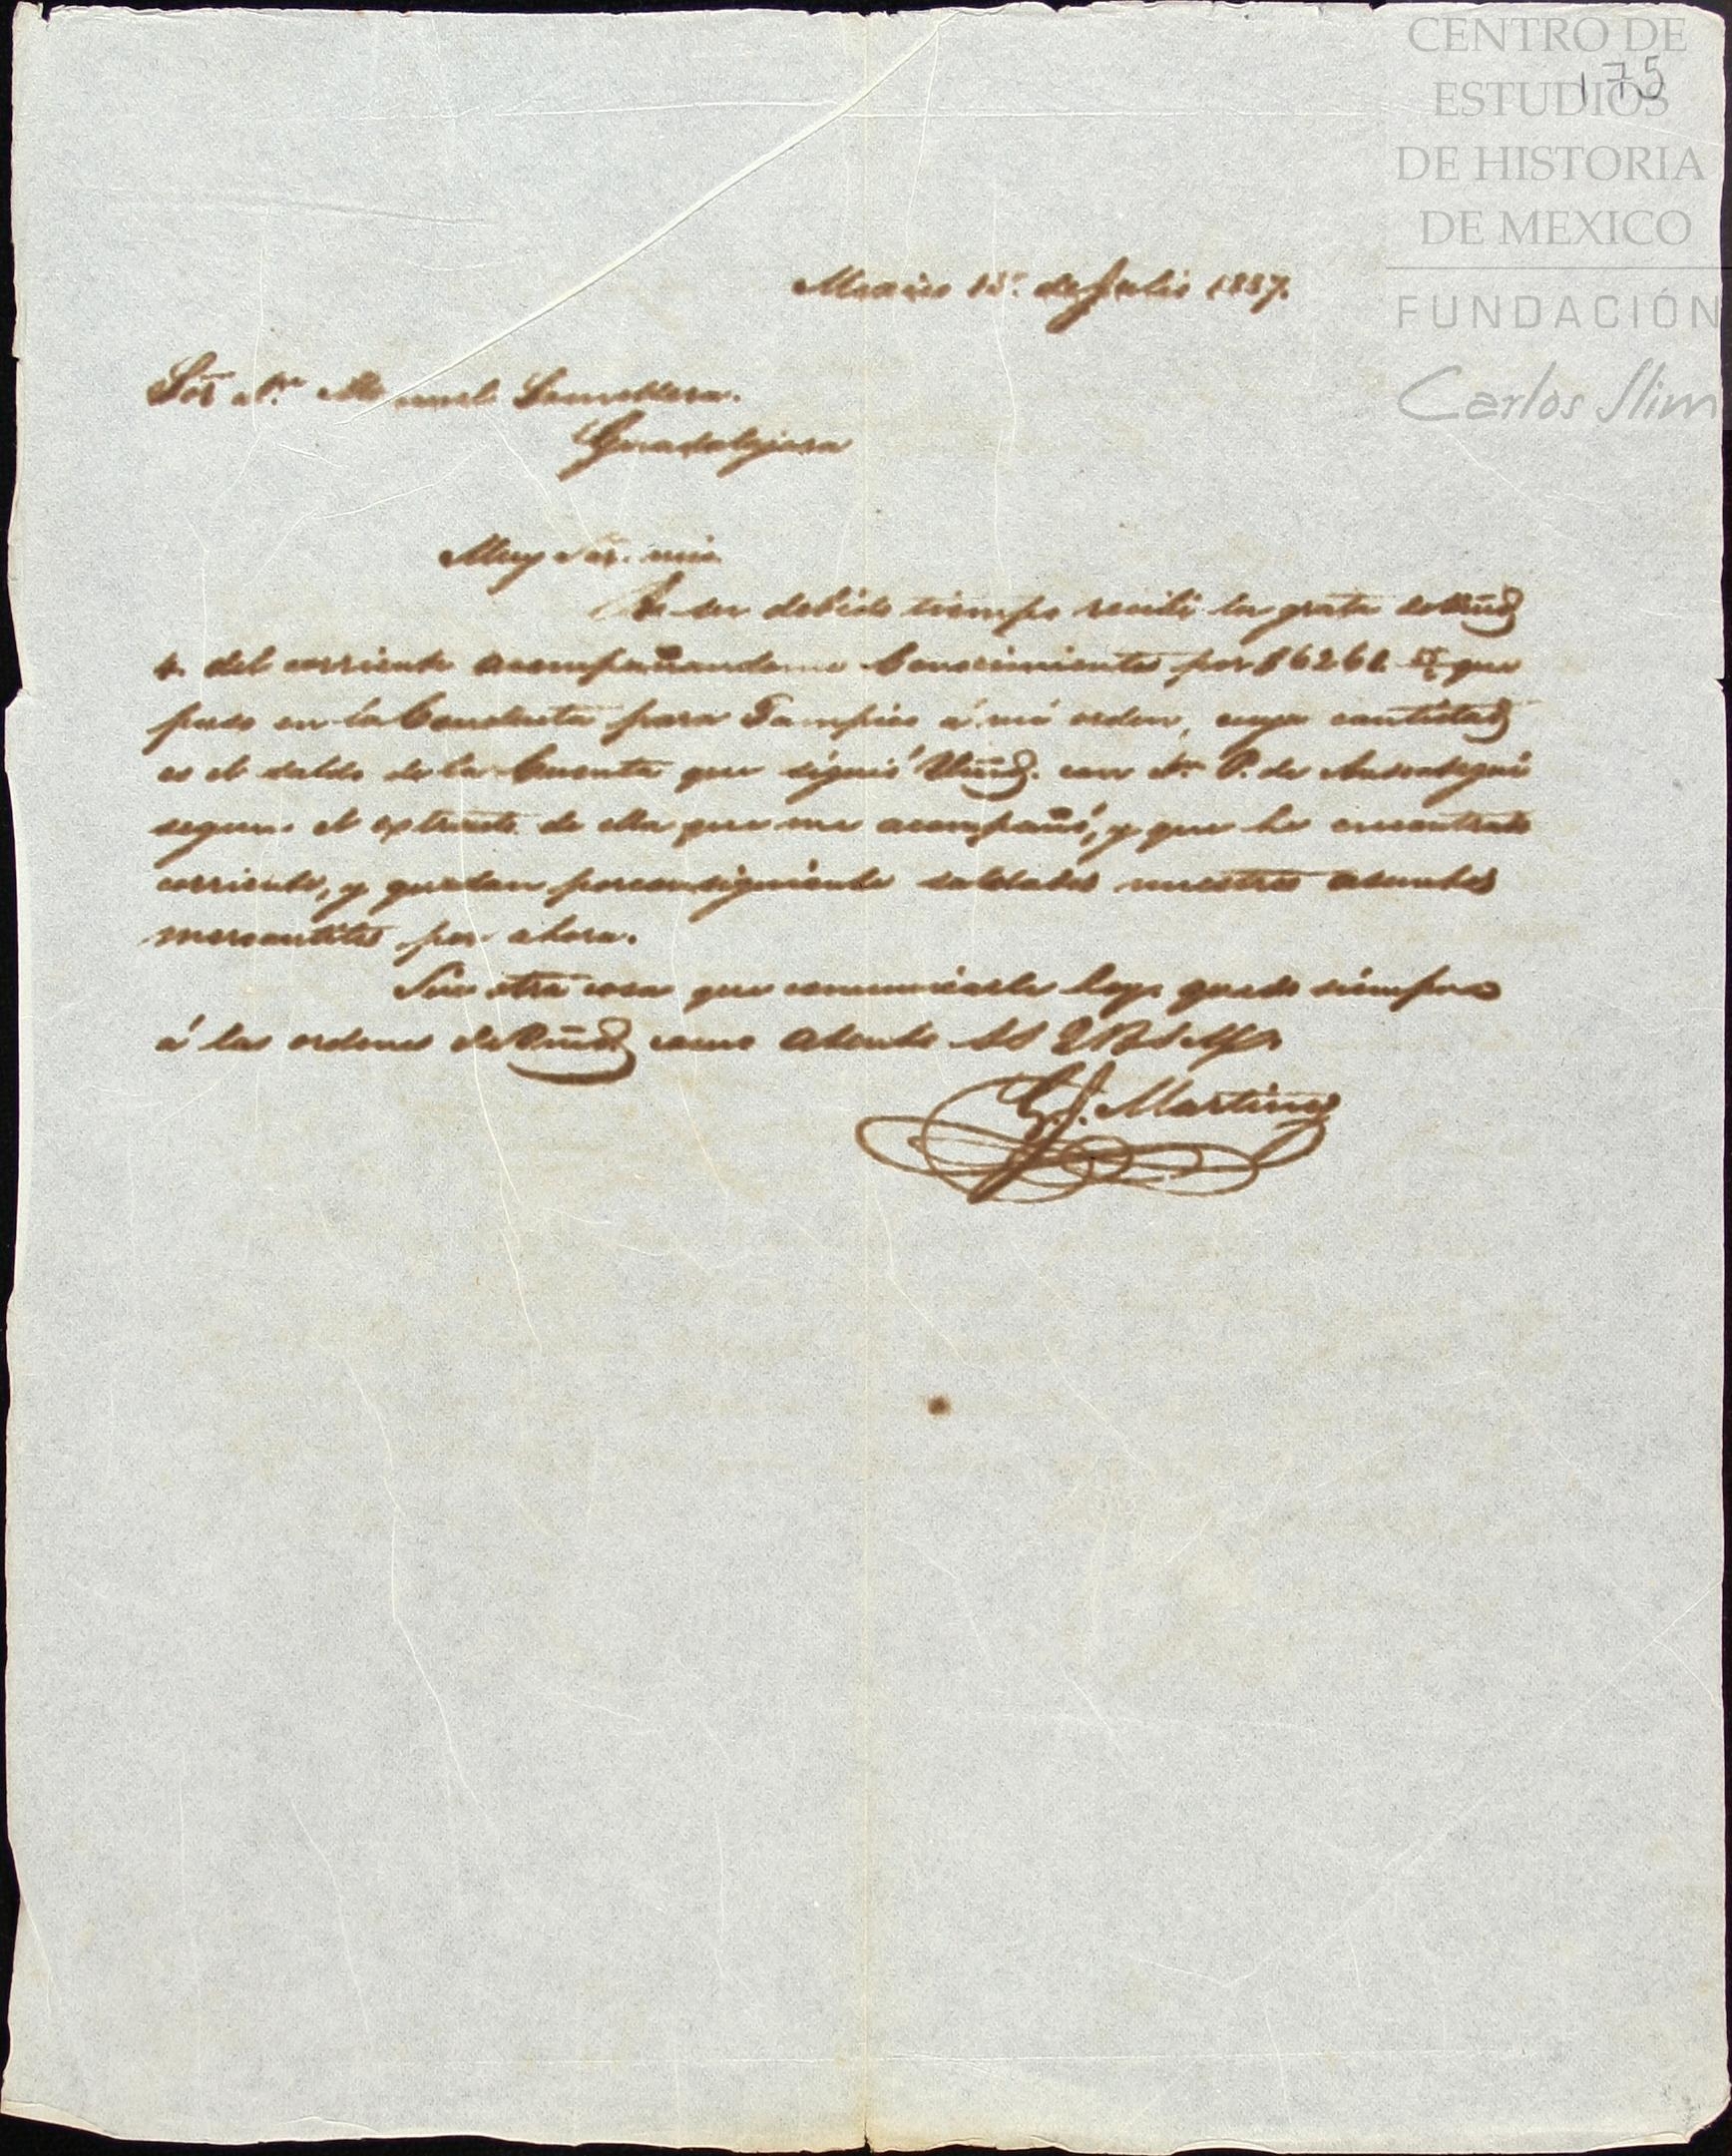 CENTRO DE
ESTUDIOS
DE HISTORIA
DE MEXICO
FUNDACIÓN
Carlos Slim
175
Mexico 15. de Julio 1837.
Sor. Dn. Manuel
Guadalajara
Muy Sor. mio
A su debido tiempo recibi la grata de
4. del corriente acompañandome Conocimiento por $6261 que
puso en la Conducta para Tampico á mi orden, cuya cantidad
es el saldo de la Cuenta que siguió con Dn. P. de
segun el extracto de ella que me acompañó, y que he encontrado
corriente, y quedan porconsiguiente saldados nuestros asuntos
mercantiles por ahora.
Sin otra cosa que comunicarle hoy quedo siempre
á las ordenes de como atento SS Q B S M
G. J. Martinez